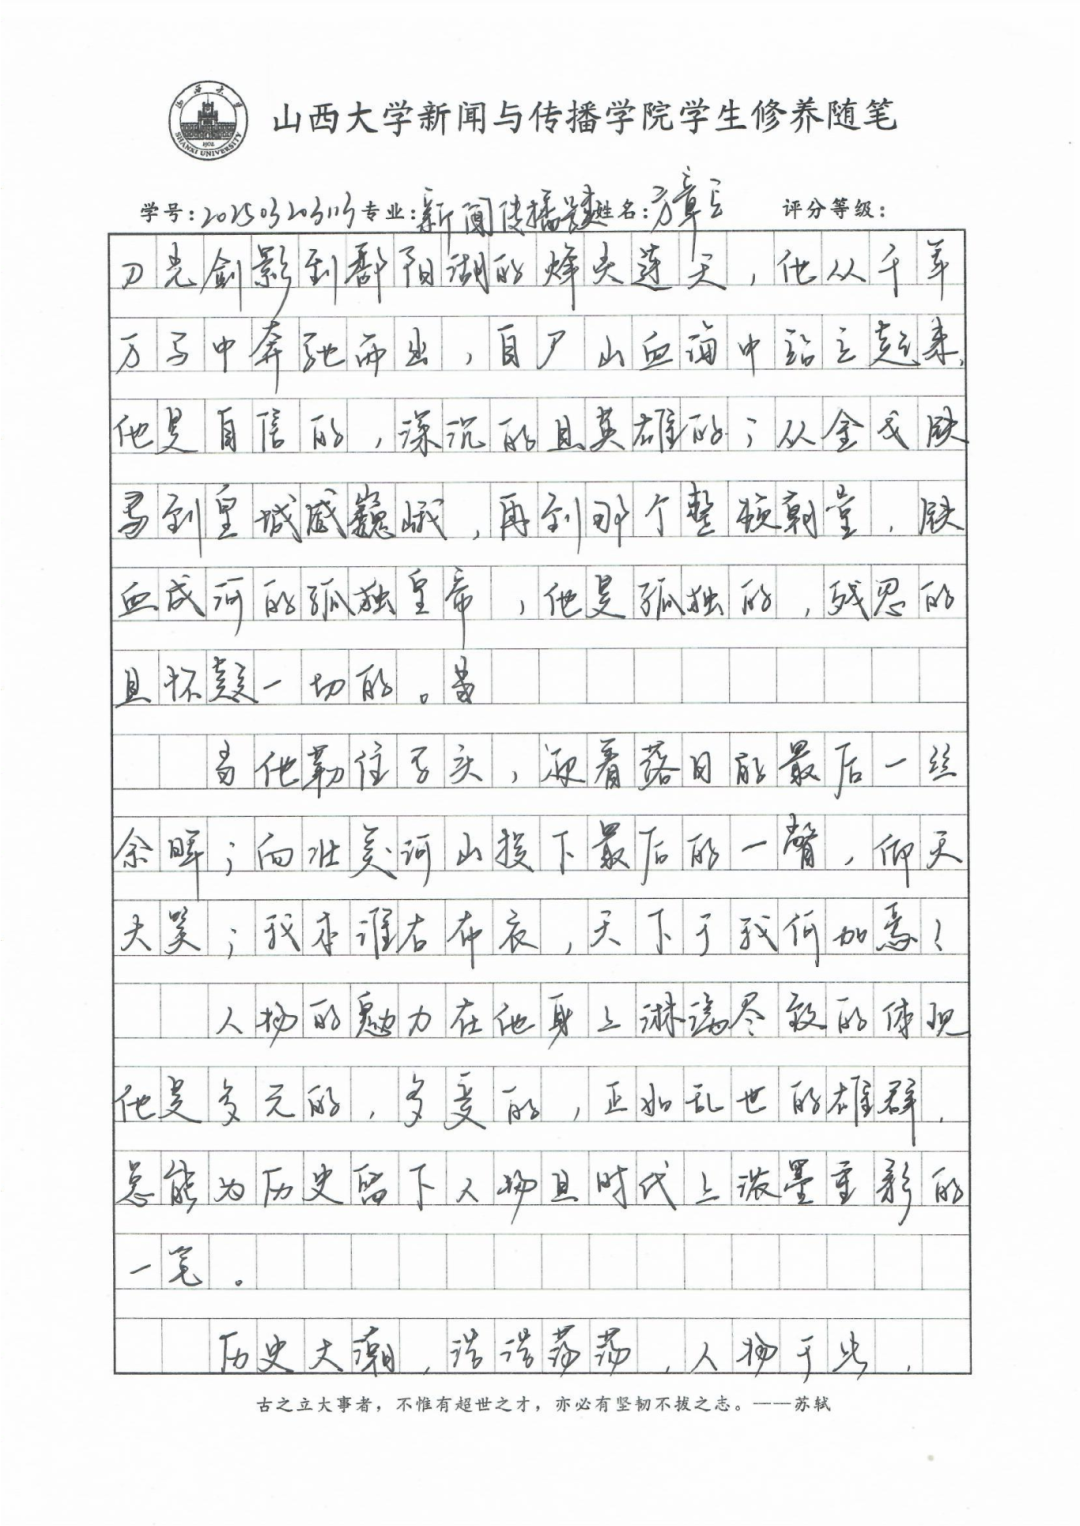 山西大学
SHANXI UNIVERSITY
1902
山西大学新闻与传播学院学生修养随笔
学号: 20250320313 专业: 新闻传播 姓名: 方章 评分等级:
刀光剑影到鄱阳湖的烽火莲天,他从千军
万马中奔驰而出,自尸山血海中站立起来,
他是自信的,深沉的且英雄的;从金戈铁
马到皇城威巍峨,再到那个整顿朝堂,铁
血成河的孤独皇帝,他是孤独的,残忍的
且怀疑一切的。
当他勒住马头,迎着落日的最后一丝
余晖;向壮美河山投下最后的一瞥,仰天
大笑;我本淮右布衣,天下于我何加焉!
人物的魅力在他身上淋漓尽致的体现
他是多元的,多变的,正如乱世的雄群,
总能为历史留下人物且时代上浓墨重彩的
一笔。
历史大潮,浩浩荡荡,人物于此,
古之立大事者,不惟有超世之才,亦必有坚韧不拔之志。——苏轼